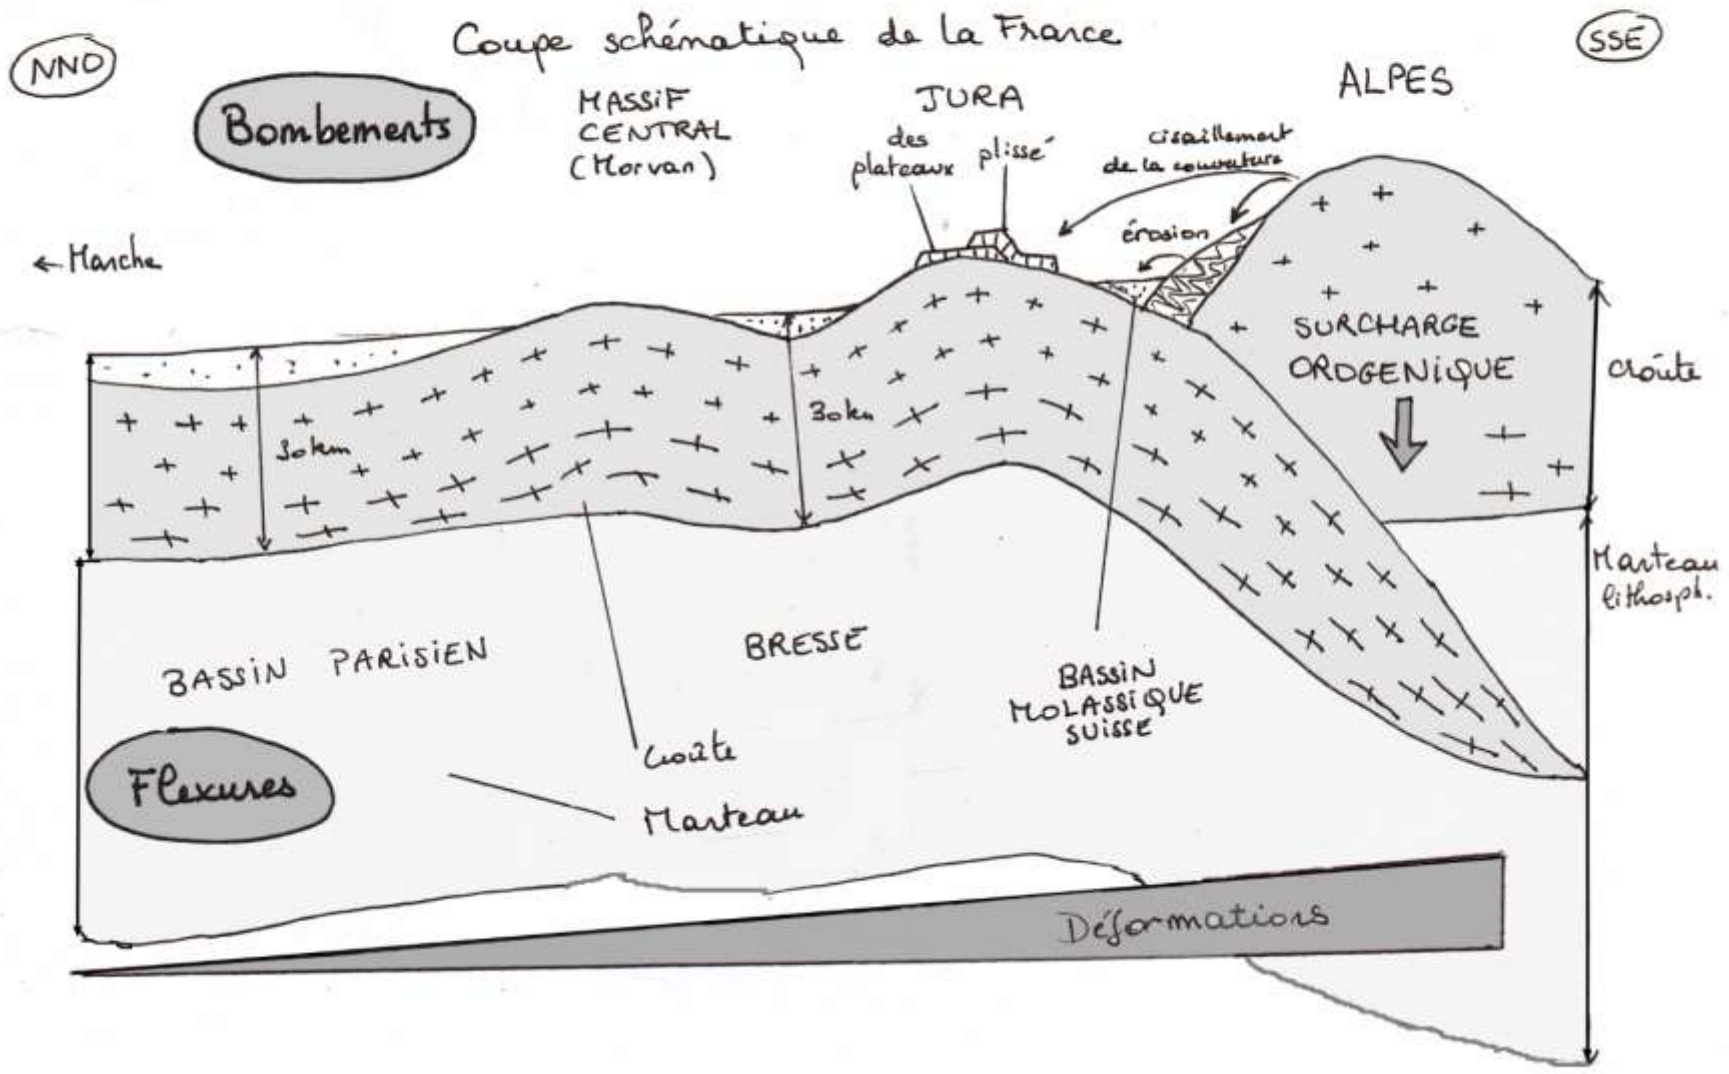 Coupe schématique de la France
NNO
SSE
Bombements
MASSIF
CENTRAL
(Morvan)
JURA
des
plateaux
plissé
ALPES
cisaillement
de la couverture
érosion
← Manche
SURCHARGE
OROGENIQUE
croûte
30km
30km
Manteau
lithosph.
BASSIN PARISIEN
BRESSE
BASSIN
MOLASSIQUE
SUISSE
Flexures
Croûte
Manteau
Déformations